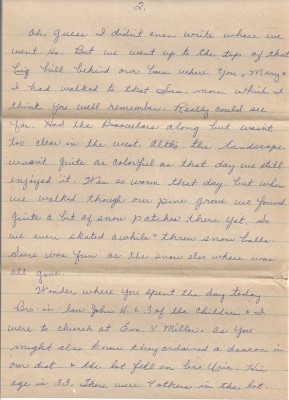 2.
Oh, guess I didn't even write where we
went to. But we went up to the top of that
big hill behind our barn where you, Mary &
I had walked to that Sun. morn. which I
think you will remember. Really could see
far. Had the Binoculars along but wasn't
too clear in the west. Altho the landscape
wasn't quite as colorful as that day we still
enjoyed it. Was so warm that day but when
we walked though our pine grove we found
quite a bit of snow patches there yet. So
we even skated awhile & threw snow balls.
Sure was fun as the snow else where was
all gone.
Wonder where you spent the day today.
Bro-in-law John H. & 3 of the children & I
were to church at Em. Y. Millers. As you
might also know they ordained a deacon in
our dist. & the lot fell on Uria. His
age is 33. There were 4 others in the lot.